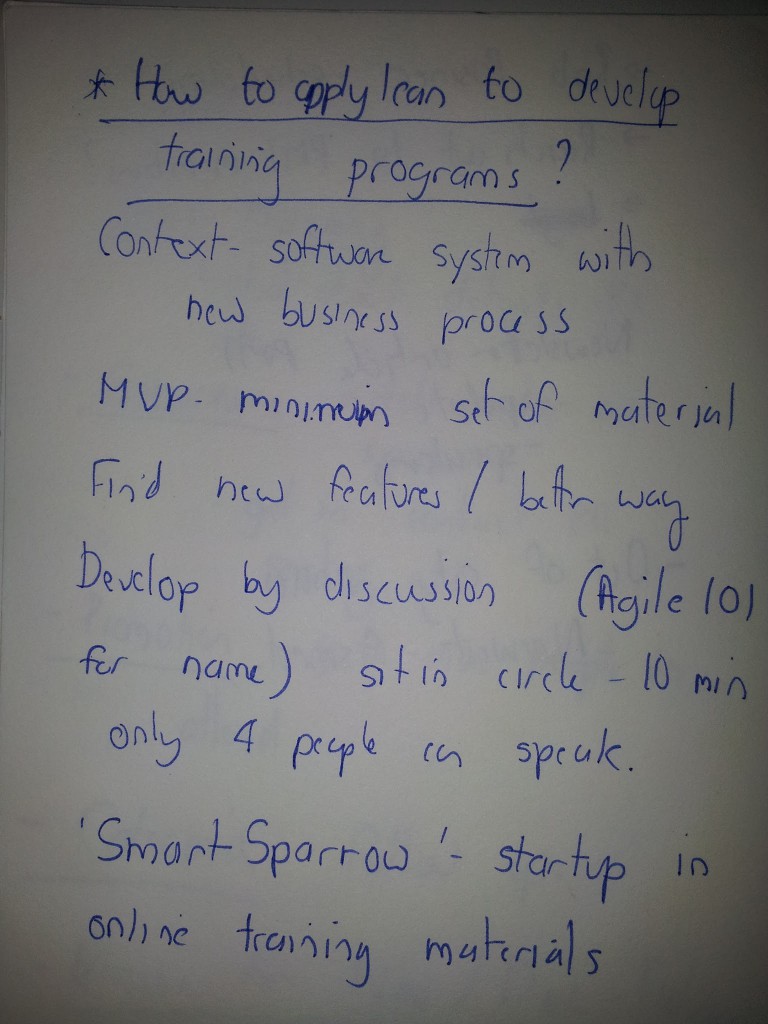 * How to apply lean to develop
training programs?
Context - software system with
new business process
MVP - minimum set of material
Find new features / better way
Develop by discussion (Agile 101
for name) sit in circle - 10 min
only 4 people can speak.
'Smart Sparrow' - startup in
online training materials